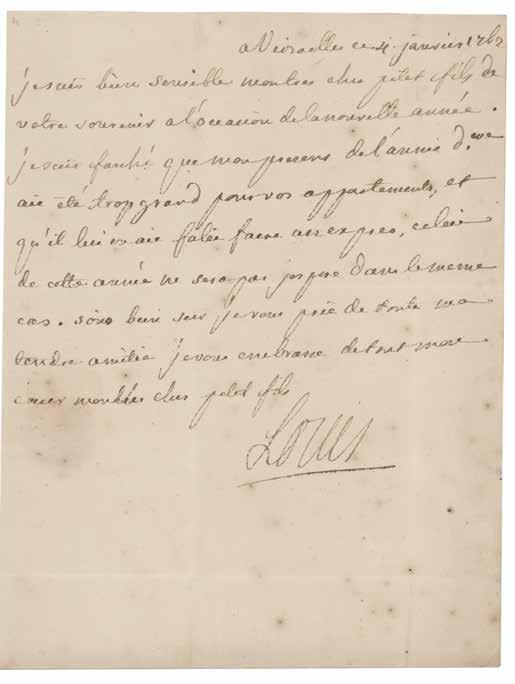 a Versailles ce 4 janvier 1762
je suis bien sensible mon tres cher petit fils de
votre souvenir a l'occasion de la nouvelle année.
je suis fasché que mon present de l'année d.ere
aie été trop grand pour vos appartements, et
qu'il lui en aie falu faire un exprès, celui
de cette année ne sera pas j'espere dans le meme
cas. soies bien sur je vous prie de toute ma
tendre amitié je vous embrasse de tout mon
cœur mon tres cher petit fils
Louis